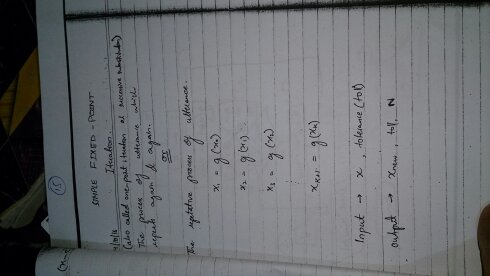 (15)
SIMPLE FIXED-POINT
Iteration.
(also called one-point iteration or successive substitution)
The process of utterance which
repeats again & again.
OR
The repetative process of utterance.
x₁ = g(x₀)
x₂ = g(x₁)
x₃ = g(x₂)
xₖ₊₁ = g(xₖ)
Input → x, tolerance (tol)
output → xₙₑw, tol, N